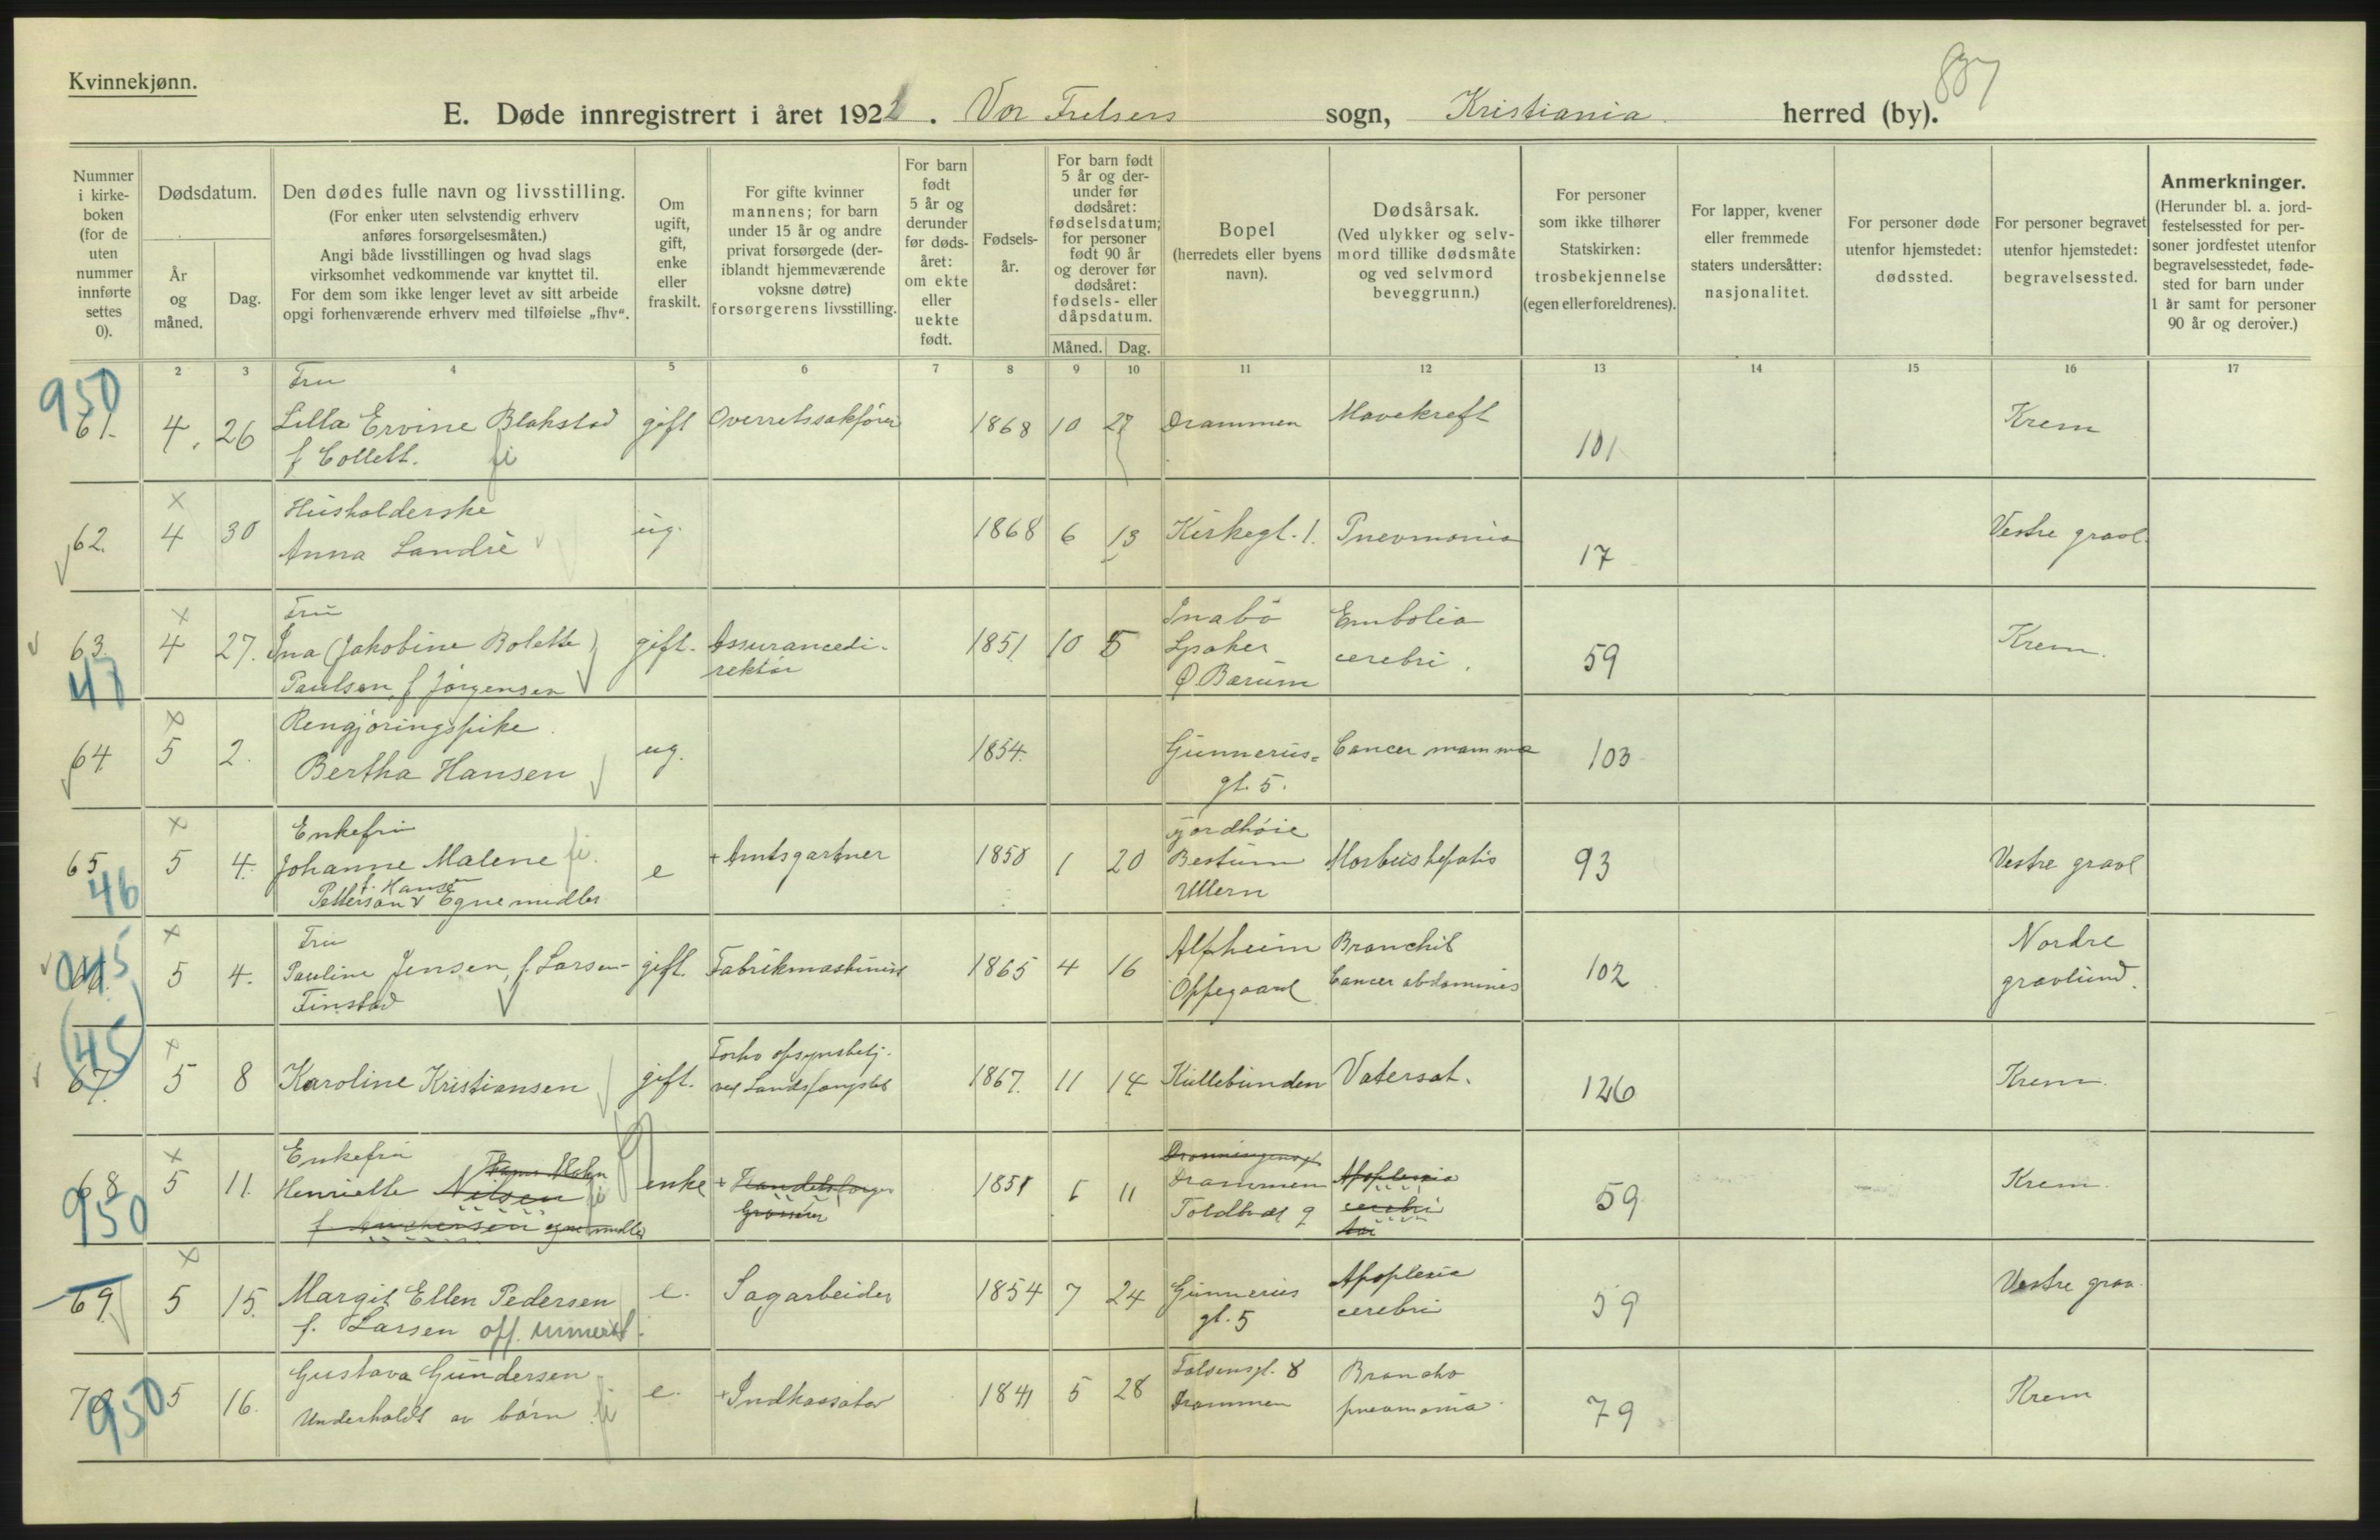 Kvinnekjønn.
837
E. Døde innregistrert i året 1922. Vor Frelsers sogn, Kristiania herred (by).
Nummer i kirkeboken (for de uten nummer innførte settes 0).
Dødsdatum.
År og måned.
Dag.
Den dødes fulle navn og livsstilling.
(For enker uten selvstendig erhverv anføres forsørgelsesmåten.)
Angi både livsstillingen og hvad slags virksomhet vedkommende var knyttet til.
For dem som ikke lenger levet av sitt arbeide opgi forhenværende erhverv med tilføielse „fhv“.
Om ugift, gift, enke eller fraskilt.
For gifte kvinner mannens; for barn under 15 år og andre privat forsørgede (deriblandt hjemmeværende voksne døtre) forsørgerens livsstilling.
For barn født 5 år og derunder før dødsåret: om ekte eller uekte født.
Fødselsår.
For barn født 5 år og derunder før dødsåret: fødselsdatum; for personer født 90 år og derover før dødsåret: fødsels- eller dåpsdatum.
Måned. Dag.
Bopel (herredets eller byens navn).
Dødsårsak.
(Ved ulykker og selvmord tillike dødsmåte og ved selvmord beveggrunn.)
For personer som ikke tilhører Statskirken: trosbekjennelse (egen eller foreldrenes).
For lapper, kvener eller fremmede staters undersåtter: nasjonalitet.
For personer døde utenfor hjemstedet: dødssted.
For personer begravet utenfor hjemstedet: begravelsessted.
Anmerkninger.
(Herunder bl. a. jordfestelsessted for personer jordfestet utenfor begravelsesstedet, fødested for barn under 1 år samt for personer 90 år og derover.)
2 3 4 5 6 7 8 9 10 11 12 13 14 15 16 17
950
61. 4. 26 Fru Lilla Ervine Blakstad f Collett. gift Overretssakfører 1868 10 27 Drammen Mavekreft 101 Krem
62. 4 30 Husholderske Anna Landrè ug. 1868 6 13 Kirkegt. 1. Pneomonia 17 Vestre gravl.
63. 4 27. Fru Ina (Jakobine Bolette) Paulsen, f Jørgensen gift. Assurancedirektør 1851 10 5 Inabo Lysaker Ø. Bærum Embolia cerebri. 59 Krem.
47
64. 5 2. Rengjøringspike. Bertha Hansen ug. 1854. Gunnerusgt. 5. Cancer mamma 103
65 5 4. Enkefru Johanne Malene Petterson f. Hansen Egne midler e + Amtsgartner 1850 1 20 Bestum Ullern Morbus hepatis 93 Vestre gravl
46
5 4. Fru Pauline Jensen, f. Larsen- Finstad gift. Fabrikmaskinist 1865 4 16 Alfheim Oppegaard Bronchit Cancer abdominis 102 Nordre gravlund.
45
(45)
67. 5 8 Karoline Kristiansen gift. ved Landsfængslet 1867. 11 14 Kullebunden Vatersot. 126 Krem.
68 5 11. Enkefru Henriette Nilsen egne midler enke + Grosserer 1851 11 Drammen Apoplexia cerebri 59 Krem.
950
69. 5 15. Margit Ellen Pedersen f. Larsen off. e. Sagarbeider 1854 7 24 Gunnerus gt. 5 Apoplexia cerebri 59 Vestre grav.
70 5 16. Gustava Gundersen Underholdt av børn e. + Indkassator 1841 5 28 Drammen Broncho pneumonia 79 Krem
950